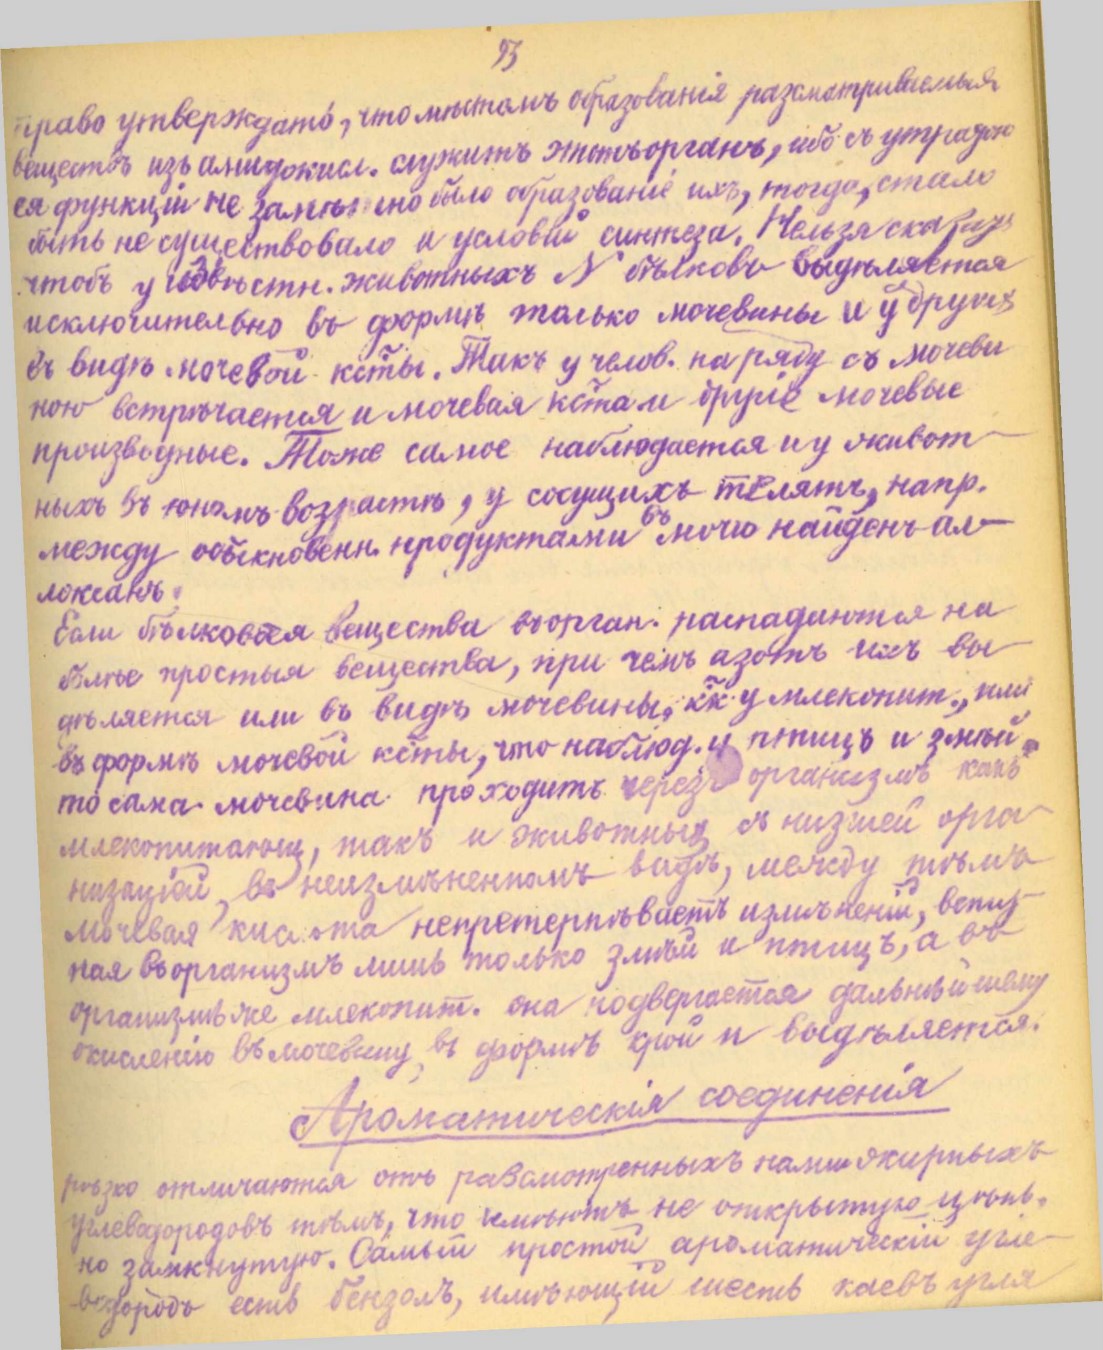 93
право утверждать, что мѣстомъ образованія разсматриваемыя
веществъ изъ амидокисл. служитъ этотъ органъ, ибо съ утратою
ея функцій не замѣчено было образованіе ихъ, тогда, стало
быть не существовало и условій синтеза. Нельзя сказать
чтобъ у извѣстн. животныхъ N бѣлковъ выдѣляется
исключительно въ формѣ только мочевины и у другихъ
въ видѣ мочевой кѣты. Такъ у челов. на ряду съ мочеви
ною встрѣчается и мочевая кѣта и другіе мочевые
производные. Тоже самое наблюдается и у живот-
ныхъ въ юномъ возрастѣ, у сосущихъ телятъ, напр.
между обыкновенн. продуктами въ мочѣ найденъ ал-
локсанъ.
Если бѣлковыя вещества въ орган. распадаются на
болѣе простыя вещества, при чемъ азотъ ихъ вы-
дѣляется или въ видѣ мочевины, кк у млекопит., или
въ формѣ мочевой кѣты, что наблюд. у птицъ и змѣй
то сама мочевина проходитъ черезъ организмъ какъ
млекопитающ, такъ и животныхъ съ низшей орга-
низаціей въ неизмѣненномъ видѣ, между тѣмъ
мочевая кислота непретерпѣваетъ измѣненій, вспид-
ная въ организмъ лишь только змѣй и птицъ, а въ
организмѣ же млекопит. она подвергается дальнѣйшему
окисленію въ мочевину, въ формѣ крой и выдѣляется.
Ароматическія соединенія
рѣзко отличаются отъ разсмотренныхъ нами жирныхъ
углеводородовъ тѣмъ, что имѣютъ не открытую цѣпь,
но замкнутую. Самый простой ароматическій угле-
водородъ есть бензолъ, имѣющій шесть паевъ угля